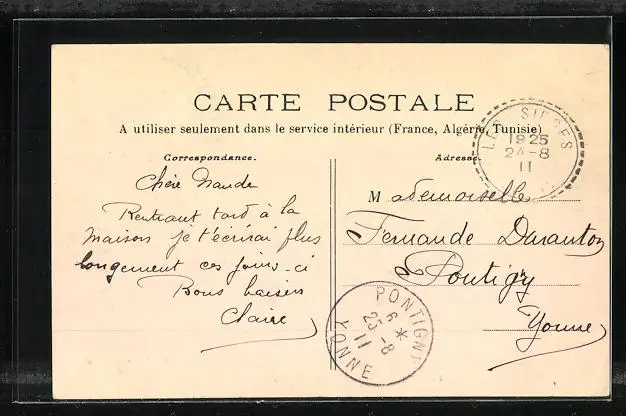 CARTE POSTALE
A utiliser seulement dans le service intérieur (France, Algérie, Tunisie)
Correspondance.
Chère Naude
Rentrant tard à la
maison je t'écrirai plus
longement ces jours-ci
Bons baisers
Claire
Adresse.
Mademoiselle
Fernande Duranton
Pontigny
Yonne
LES SIEGES
1925
24-8
11
PONTIGNY
6 *
25-8
11
YONNE